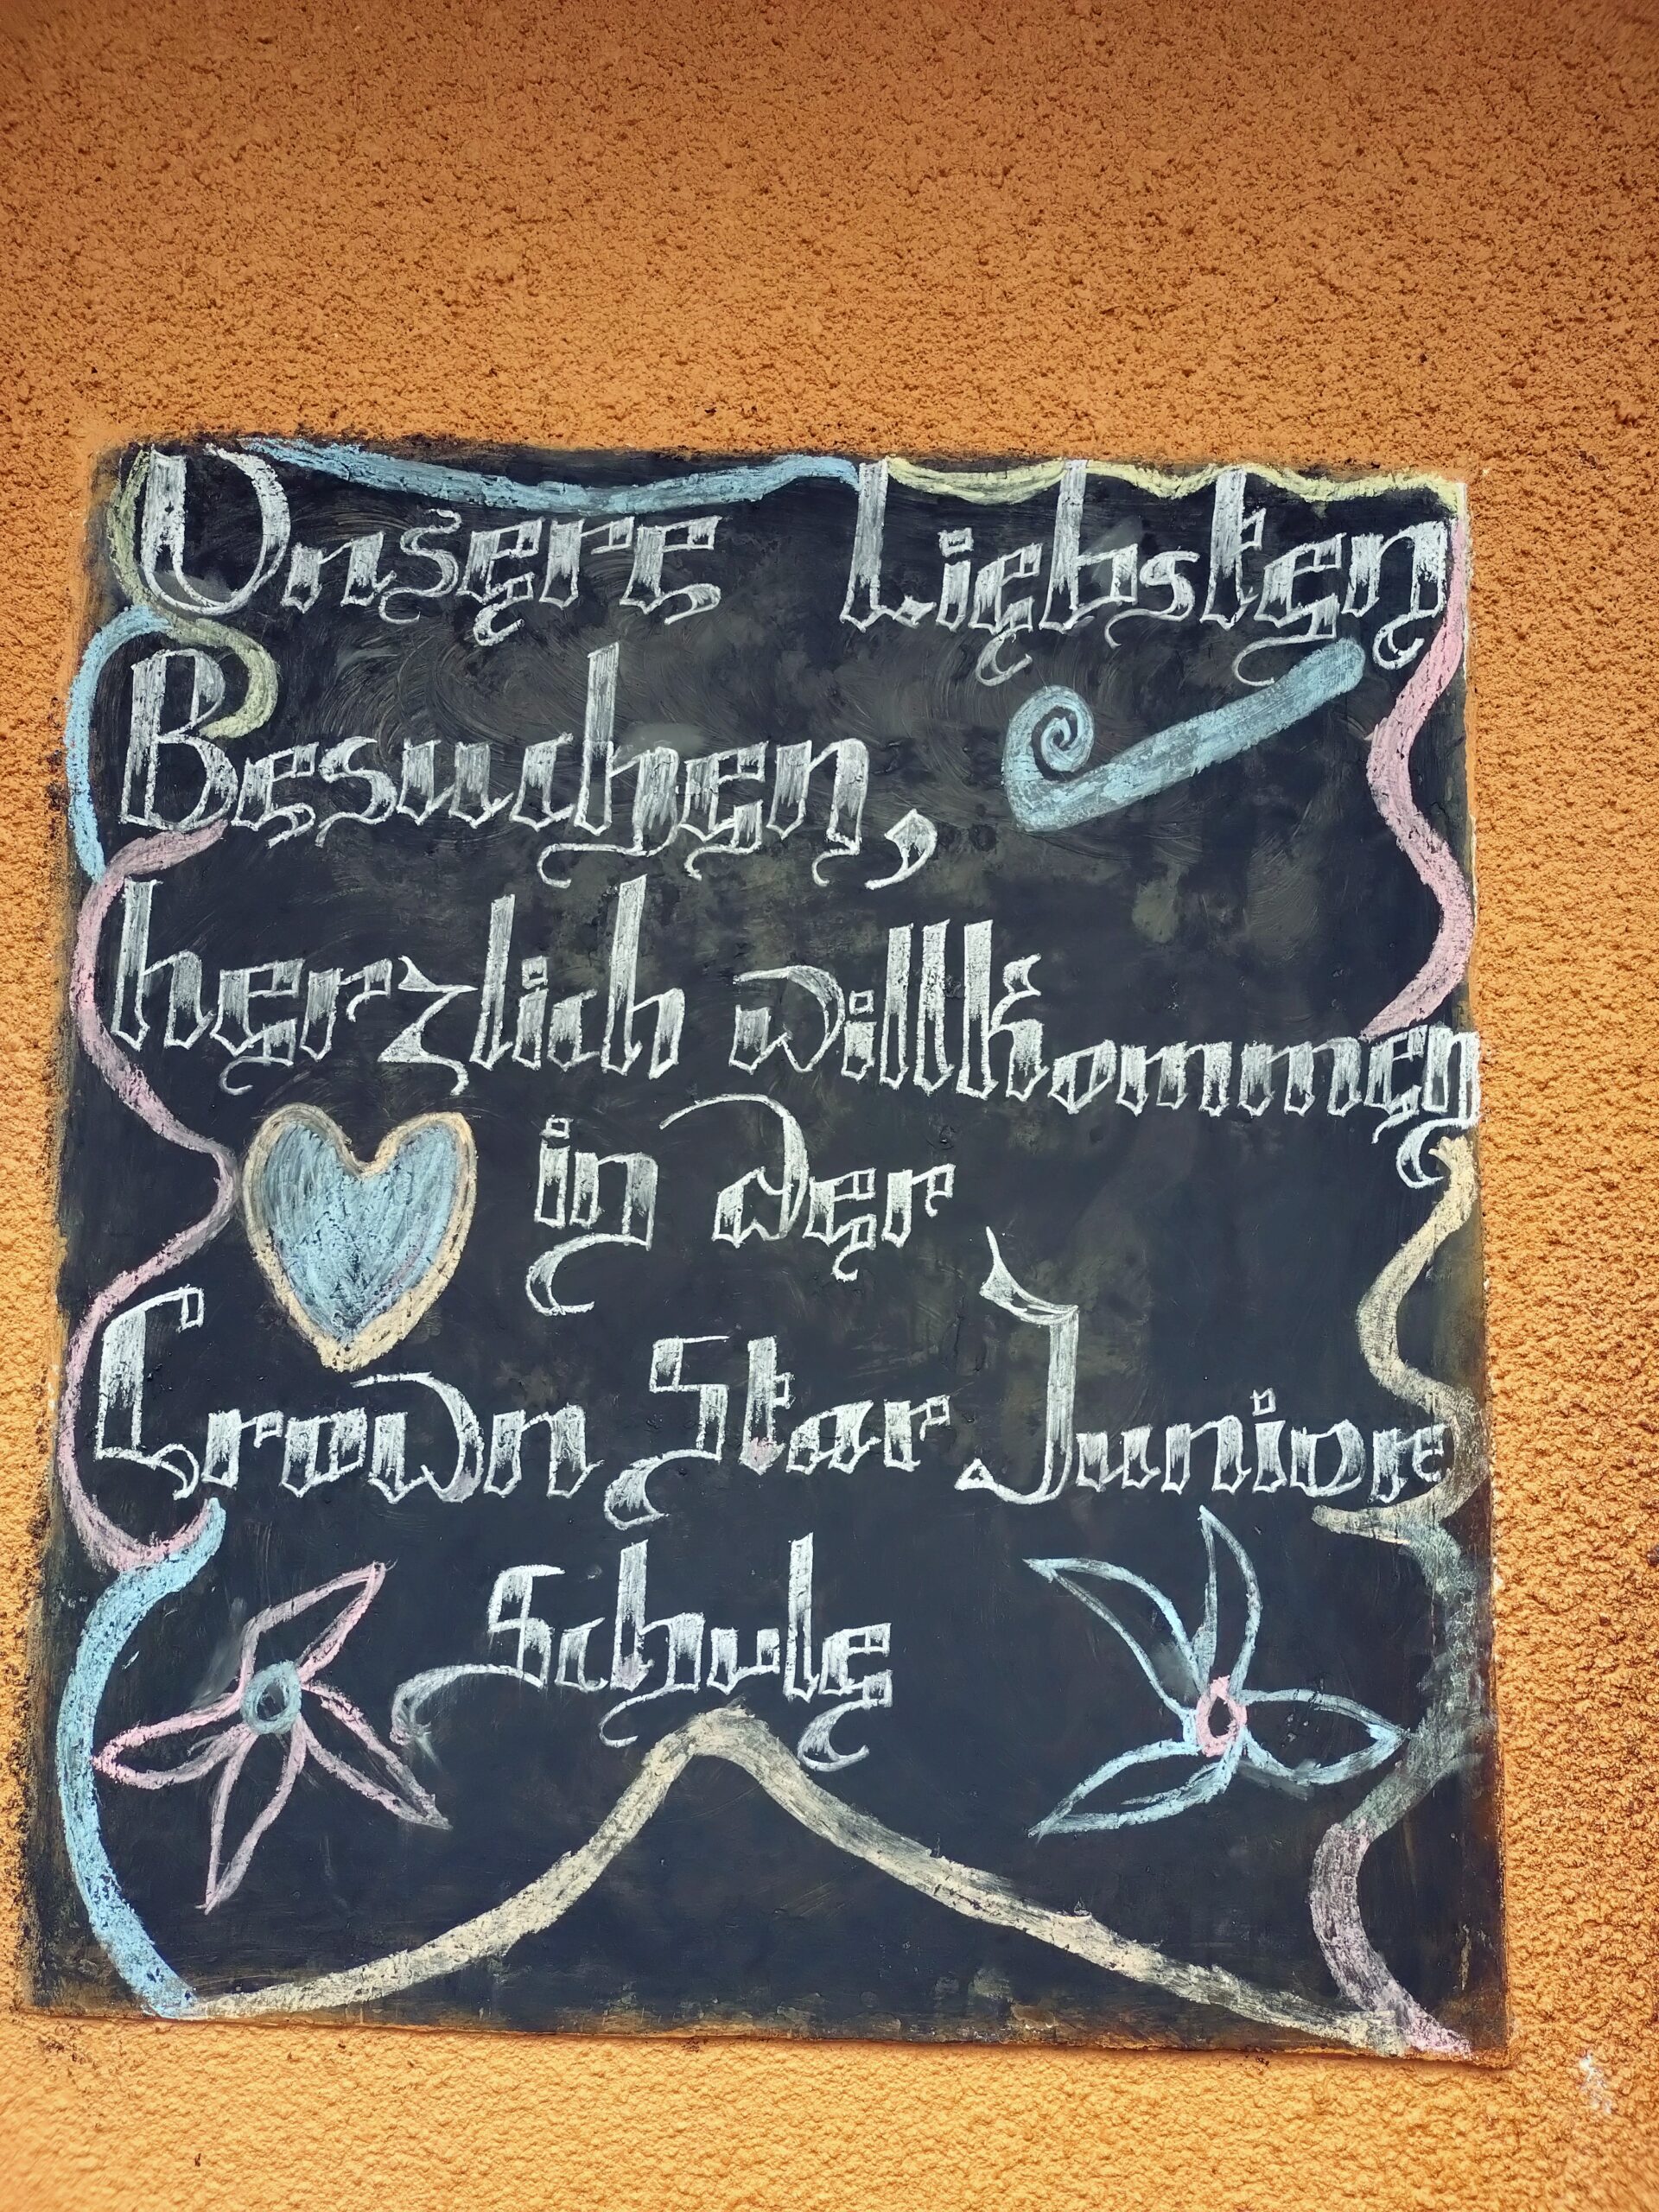 Unsere Liebsten
Besuchen,
herzlich willkommen
in der
Crown Star Junior
Schule